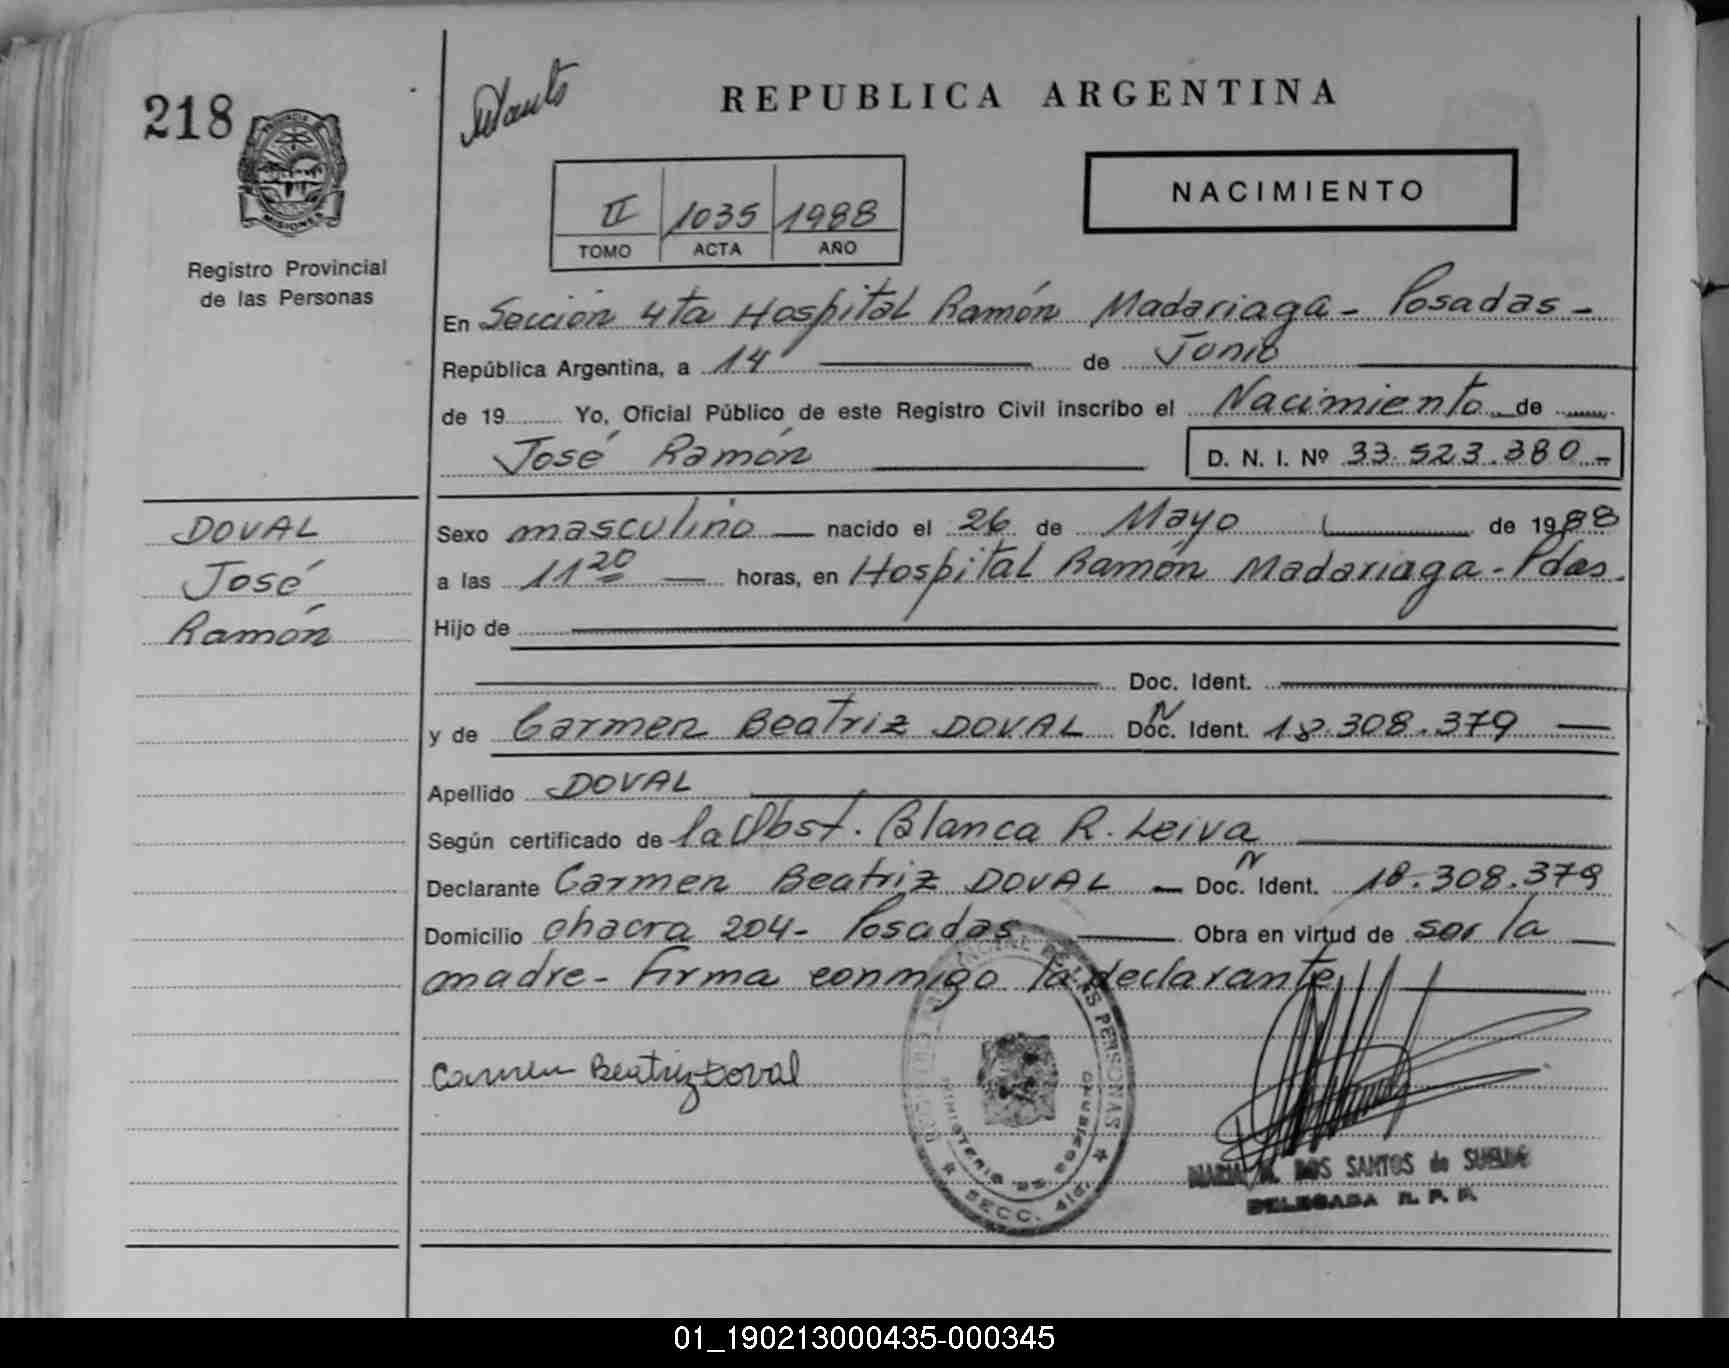 218
REPUBLICA ARGENTINA
PROVINCIA DE
MISIONES
Registro Provincial
de las Personas
NACIMIENTO
II 1035 1988
TOMO ACTA AÑO
En Sección 4ta Hospital Ramón Madariaga - Posadas -
República Argentina, a 14 de Junio
de 19 Yo, Oficial Público de este Registro Civil inscribo el Nacimiento de
José Ramón D. N. I. Nº 33.523.380.-
DOVAL
José
Ramón
Sexo masculino nacido el 26 de Mayo de 1988
a las 11 20 horas, en Hospital Ramón Madariaga - Pdas.
Hijo de
Doc. Ident.
y de Carmen Beatriz DOVAL Doc. N Ident. 18.308.379
Apellido DOVAL
Según certificado de la Obst. Blanca R. Leiva
Declarante Carmen Beatriz DOVAL Doc. N Ident. 18.308.379
Domicilio chacra 204 - Posadas Obra en virtud de ser la
madre - Firma conmigo la declarante
Carmen Beatriz Doval
PROVINCIAL DE LAS PERSONAS
MINISTERIO DE
SECC. 4ta.
MARIA DOS SANTOS de
DELEGADA R. P. P.
01_190213000435-000345